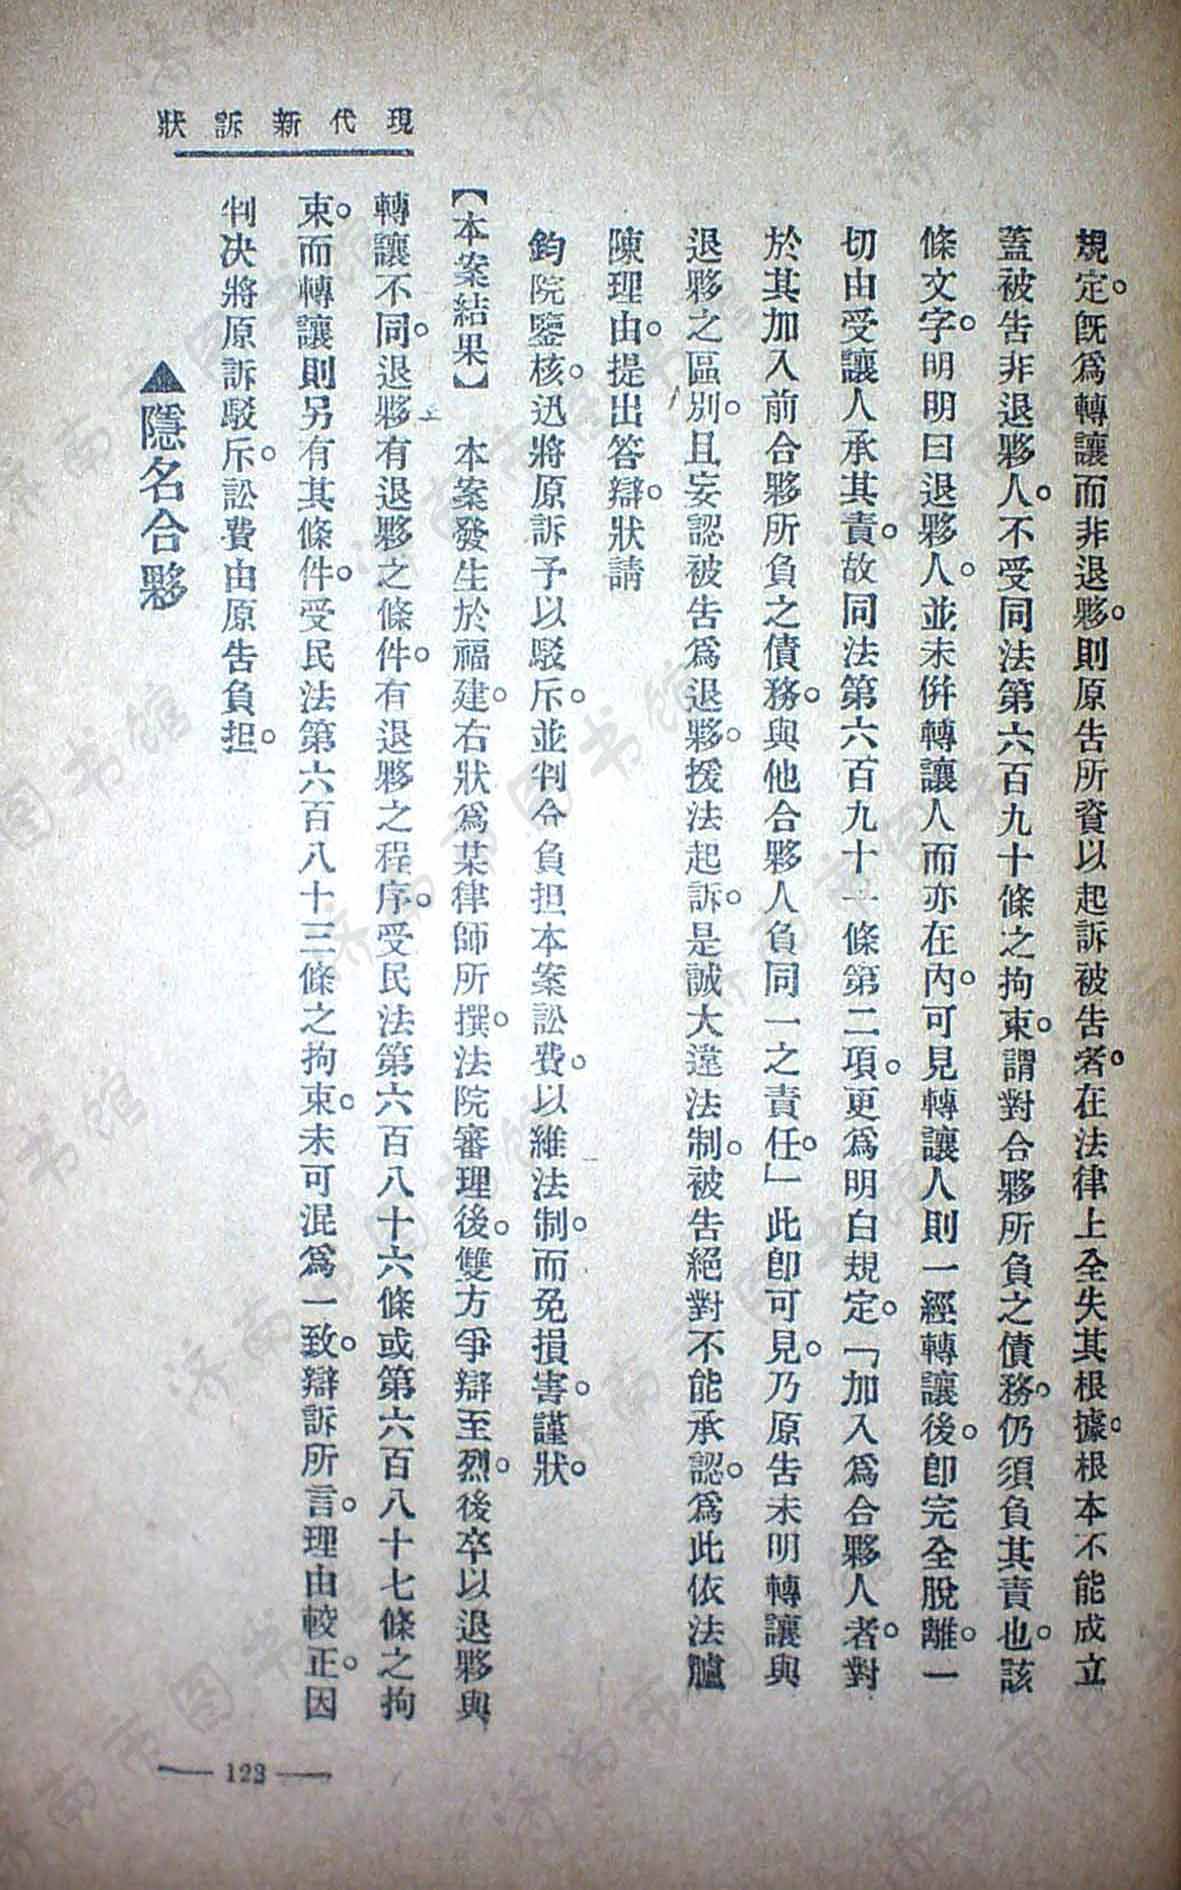 現代新訴狀
規定。既爲轉讓而非退夥。則原告所資以起訴被告者。在法律上全失其根據。根本不能成立
蓋被告非退夥人。不受同法第六百九十條之拘束。謂對合夥所負之債務。仍須負其責也。該
條文字。明明曰退夥人。並未併轉讓人而亦在內。可見轉讓人則一經轉讓後。卽完全脫離。一
切由受讓人承其責。故同法第六百九十一條第二項。更爲明白規定。「加入爲合夥人者。對
於其加入前合夥所負之債務。與他合夥人負同一之責任。」此卽可見。乃原告未明轉讓與
退夥之區別。且妄認被告爲退夥。援法起訴。是誠大違法制。被告絕對不能承認。爲此依法臚
陳理由。提出答辯。狀請
鈞院鑒核。迅將原訴予以駁斥。並判令負担本案訟費。以維法制。而免損害。謹狀。
【本案結果】 本案發生於福建。右狀爲某律師所撰。法院審理後。雙方爭辯至烈。後卒以退夥與
轉讓不同。退夥有退夥之條件。有退夥之程序。受民法第六百八十六條或第六百八十七條之拘
束。而轉讓則另有其條件。受民法第六百八十三條之拘束。未可混爲一致。辯訴所言。理由較正。因
判决將原訴駁斥。訟費由原告負担。
▲隱名合夥
— 123 —
济南市图书馆